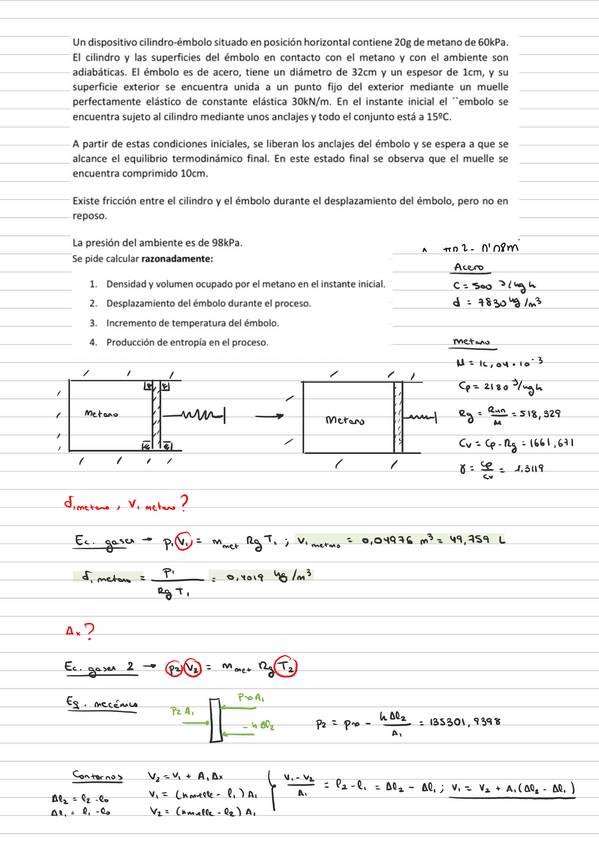 Un dispositivo cilindro-émbolo situado en posición horizontal contiene 20g de metano de 60kPa.
El cilindro y las superficies del émbolo en contacto con el metano y con el ambiente son
adiabáticas. El émbolo es de acero, tiene un diámetro de 32cm y un espesor de 1cm, y su
superficie exterior se encuentra unida a un punto fijo del exterior mediante un muelle
perfectamente elástico de constante elástica 30kN/m. En el instante inicial el ``embolo se
encuentra sujeto al cilindro mediante unos anclajes y todo el conjunto está a 15ºC.
A partir de estas condiciones iniciales, se liberan los anclajes del émbolo y se espera a que se
alcance el equilibrio termodinámico final. En este estado final se observa que el muelle se
encuentra comprimido 10cm.
Existe fricción entre el cilindro y el émbolo durante el desplazamiento del émbolo, pero no en
reposo.
La presión del ambiente es de 98kPa.
Se pide calcular razonadamente:
1. Densidad y volumen ocupado por el metano en el instante inicial.
2. Desplazamiento del émbolo durante el proceso.
3. Incremento de temperatura del émbolo.
4. Producción de entropía en el proceso.
Acero
C = 500 J/kg k
d = 7830 kg/m³
metano
M = 16,04·10⁻³
Cp = 2180 J/kg k
Rg = Run/M = 518,329
Cv = Cp - Rg = 1661,671
γ = Cp/Cv = 1.3119
Metano
Metano
d₁metano, V₁ metano?
Ec. gases → p₁V₁ = m met Rg T₁ ; V₁ metano = 0,04976 m³ = 49,759 L
d₁ metano = P₁/Rg T₁ = 0,4019 kg/m³
Δx?
Ec. gases 2 → p₂ V₂ = m met Rg T₂
Eq. mecánico
P₂ A₁
P∞ A₁
- k Δl₂
P₂ = p∞ - k Δl₂/A₁ = 135301,9398
Contornos
V₂ = V₁ + A₁ Δx
Δl₂ = l₂ - l₀
V₁ = (hmuelle - l₁) A₁
Δl₁ = l₁ - l₀
V₂ = (hmuelle - l₂) A₁
V₁ - V₂/A₁ = l₂ - l₁ = Δl₂ - Δl₁ ; V₁ = V₂ + A₁(Δl₂ - Δl₁)